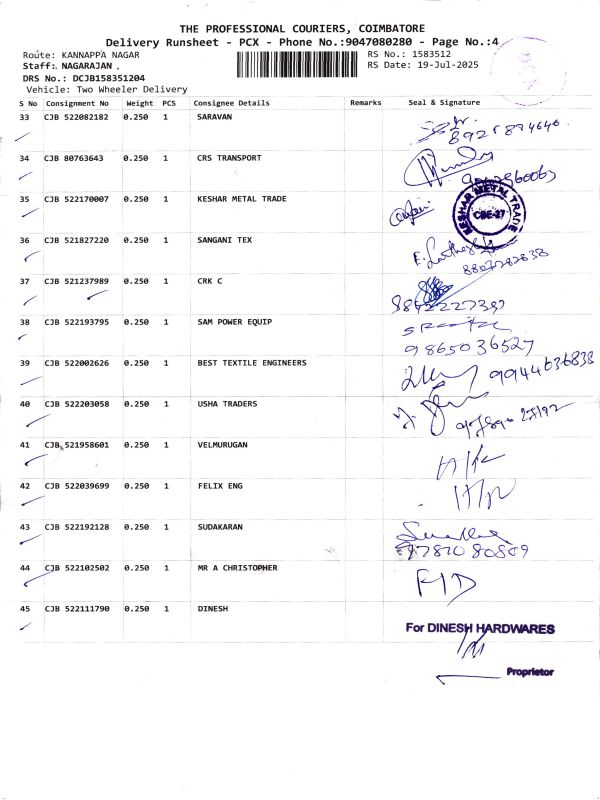 THE PROFESSIONAL COURIERS, COIMBATORE
Delivery Runsheet - PCX - Phone No.:9047080280 - Page No.:4
Route: KANNAPPA NAGAR
RS No.: 1583512
Staff: NAGARAJAN .
RS Date: 19-Jul-2025
DRS No.: DCJB158351204
Vehicle: Two Wheeler Delivery
S No Consignment No Weight PCS Consignee Details Remarks Seal & Signature
33 CJB 522082182 0.250 1 SARAVAN
34 CJB 80763643 0.250 1 CRS TRANSPORT
35 CJB 522170007 0.250 1 KESHAR METAL TRADE
KESHAR METAL TRADE
CBE-27
36 CJB 521827220 0.250 1 SANGANI TEX
37 CJB 521237989 0.250 1 CRK C
38 CJB 522193795 0.250 1 SAM POWER EQUIP
9865036527
39 CJB 522002626 0.250 1 BEST TEXTILE ENGINEERS
9944636838
40 CJB 522203058 0.250 1 USHA TRADERS
41 CJB 521958601 0.250 1 VELMURUGAN
42 CJB 522039699 0.250 1 FELIX ENG
43 CJB 522192128 0.250 1 SUDAKARAN
44 CJB 522102502 0.250 1 MR A CHRISTOPHER
45 CJB 522111790 0.250 1 DINESH
For DINESH HARDWARES
Proprietor